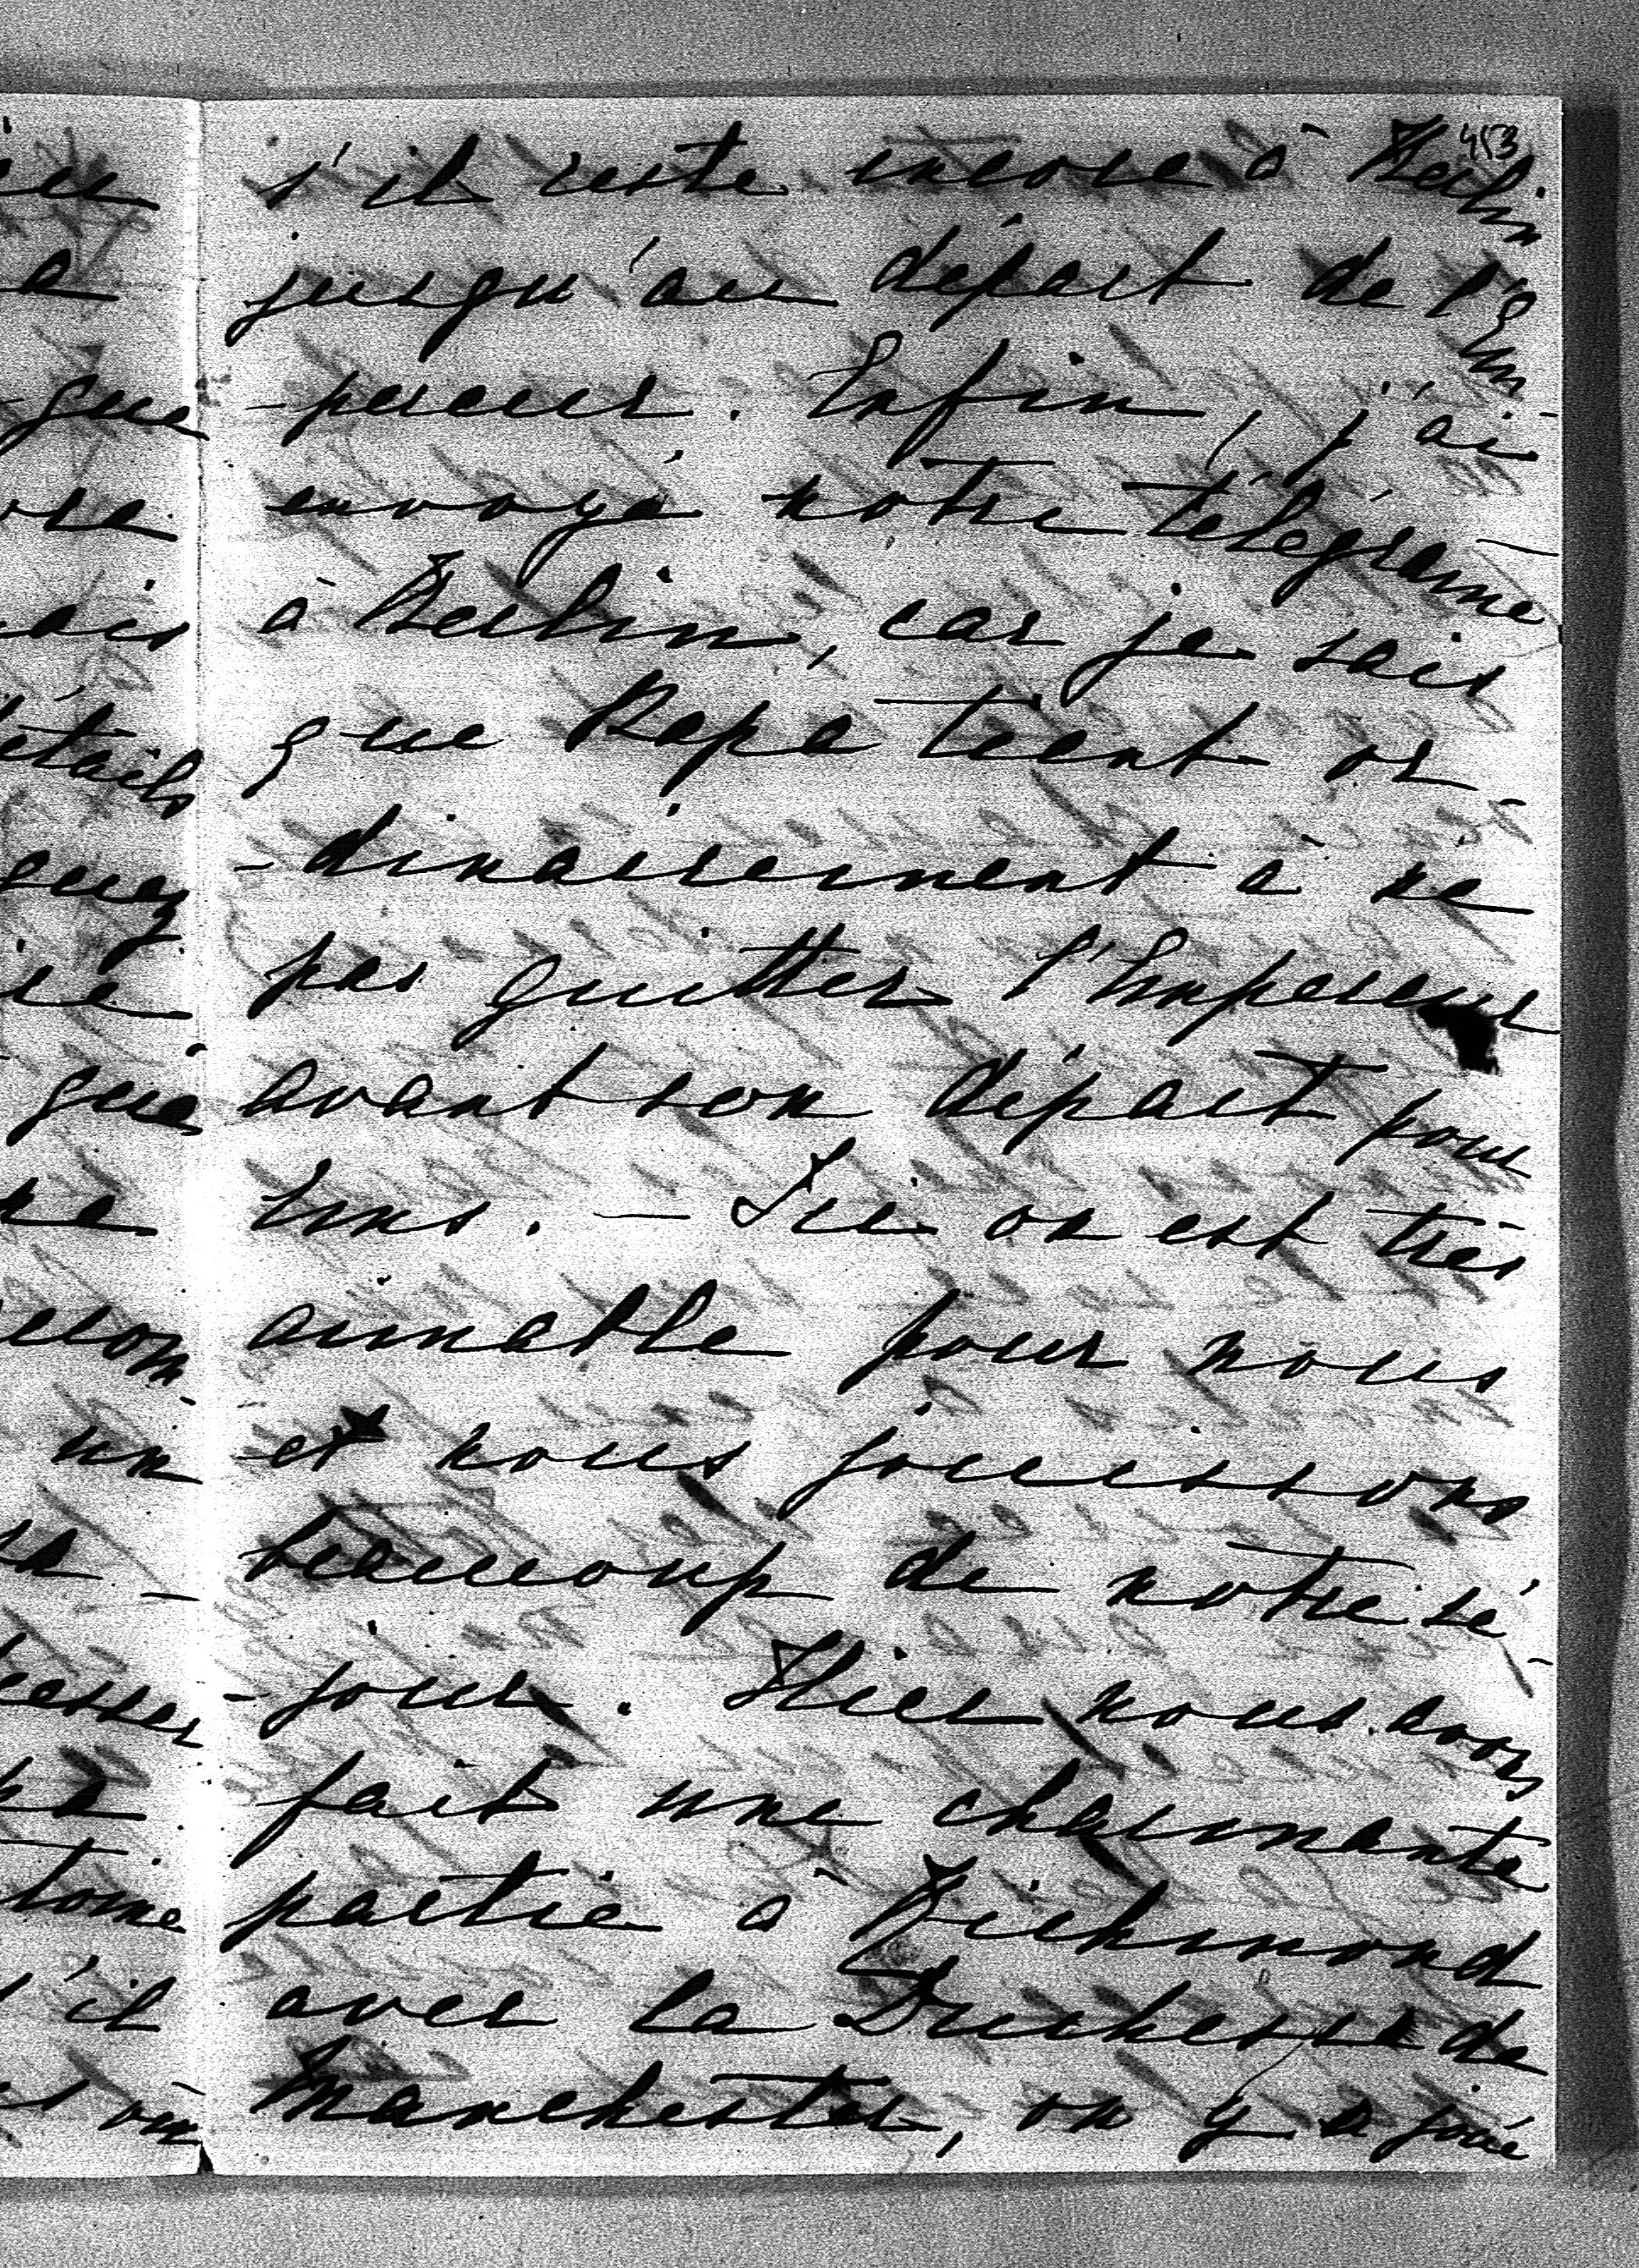 453
s'il reste encore à Berlin
jusqu'au départ de l'Em
-pereur. Enfin, j'ai
envoyé notre télégrame
à Berlin, car je sais
que Papa tient or-
-dinairement à ne
pas quitter l'Empereur
avant son départ pour
Ems. — Ici on est très
aimable pour nous
et nous jouissons
beaucoup de notre sé-
-jour. Hier nous avons
fait une charmante
partie à Richmond
avec la Duchesse de
Manchester, on y a joué